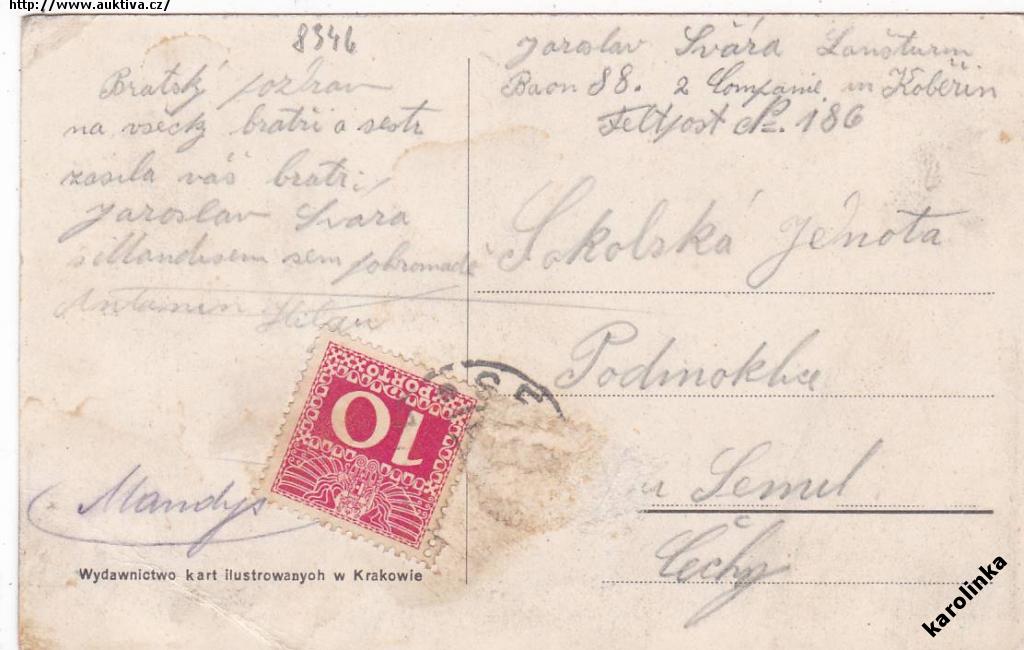 http://www.auktiva.cz/
8346
Bratský pozdrav
na všecky bratři a sestr
zasila váš bratři
Jaroslav Svara
s Mandisem sem pohromadě
Antonin
Mandys
Wydawnictwo kart ilustrowanych w Krakowie
Jaroslav Svára Lanšturm
Baon 88. 2 Companie in Koběřin
Feltpost No. 186
Sokolská Jednota
Podmoklice
u Semil
Čechy
PORTO
10
karolinka